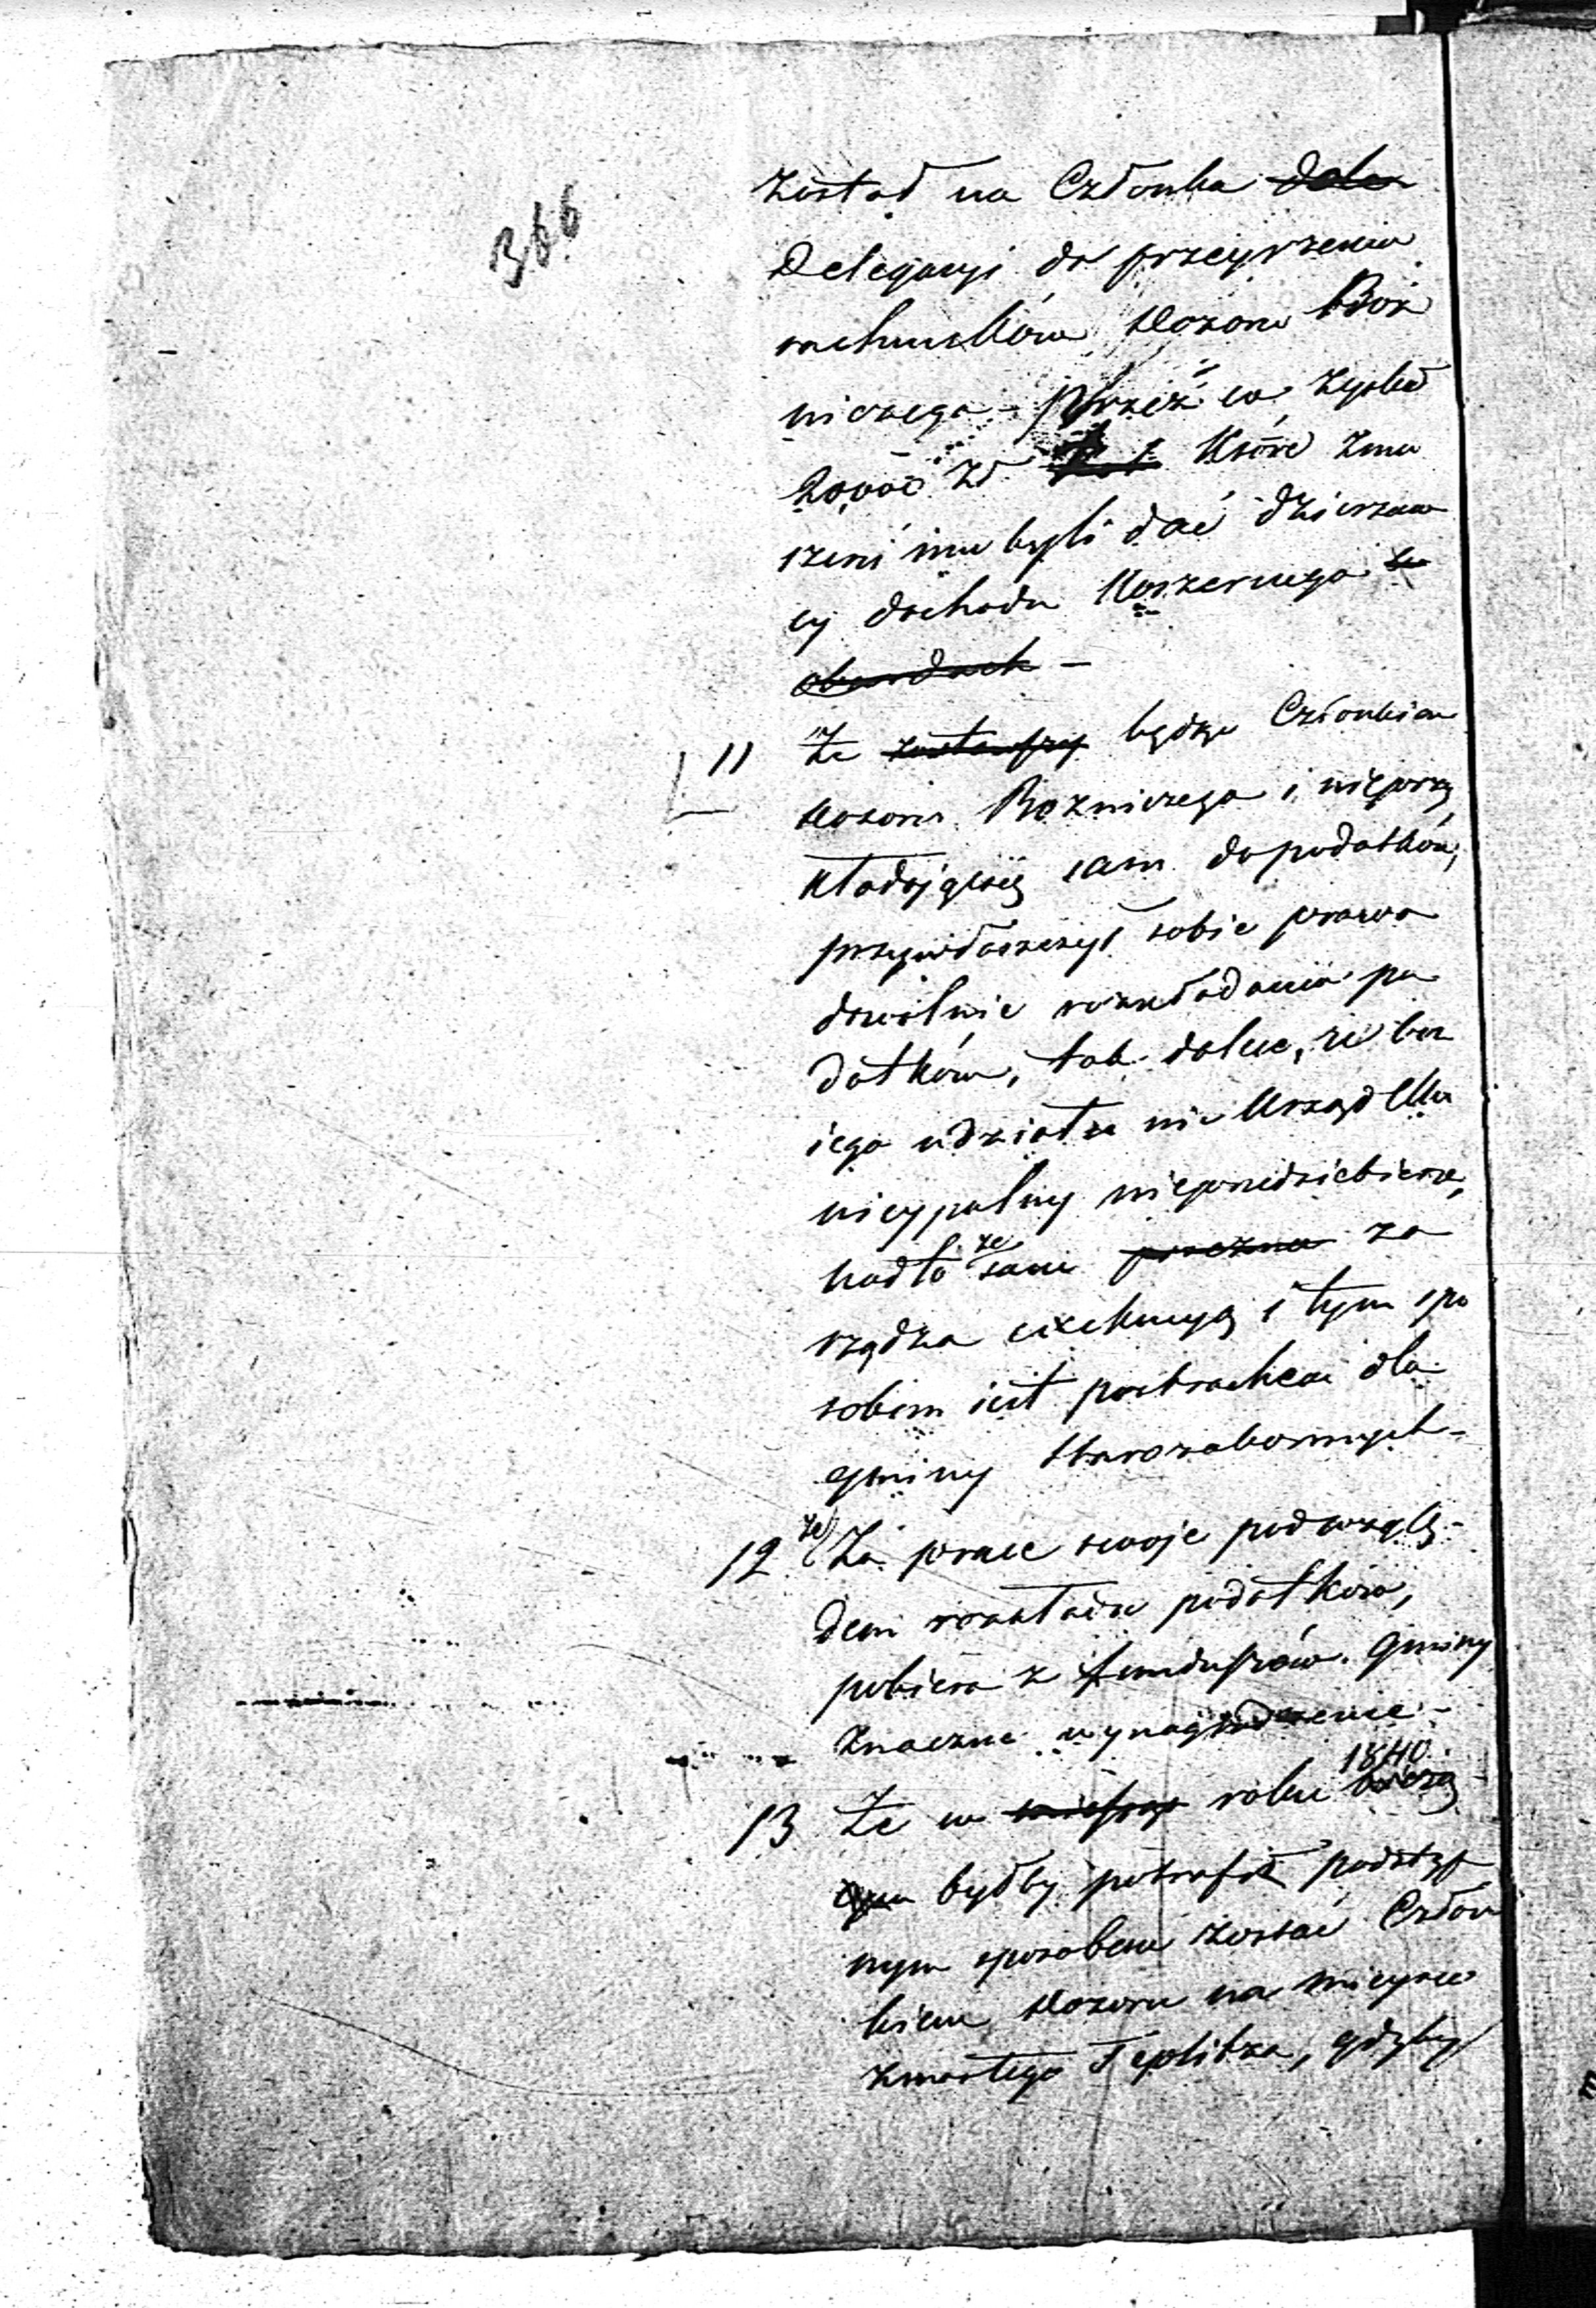 366
został na Członka
Delegacyi do przeyrzenia
rachunków Dozoru Boż
niczego – przez co zyskał
zł które zmu
szeni mu byli dać dzierzaw
cy dochodu Koszernego
obwodach –
11 Że zostawszy będąc Członkiem
Dozoru Bożniczego i nieprzy
kładając się sam do podatków,
przywłaszczył sobie prawo
dowolnie rozkładania po
datków, tak dalece, że bez
iego udziału nic Urząd Mu
nicypalny nieprzedsiebierze,
nadto że sam za
rządza exekucyą i tym spo
sobem iest postrachem dla
gminy Starozakonnych –
12 że Za prace swoje pod wzglę-
dem rozkładu podatków,
pobiera z funduszów Gminy
znaczne wynagrodzenie –
13 Że w roku bieżą 1840
cym byłby potrafił podstęp
nym sposobem zostać Człon
kiem Dozoru na mieysce
zmarłego Teplitza, gdyby